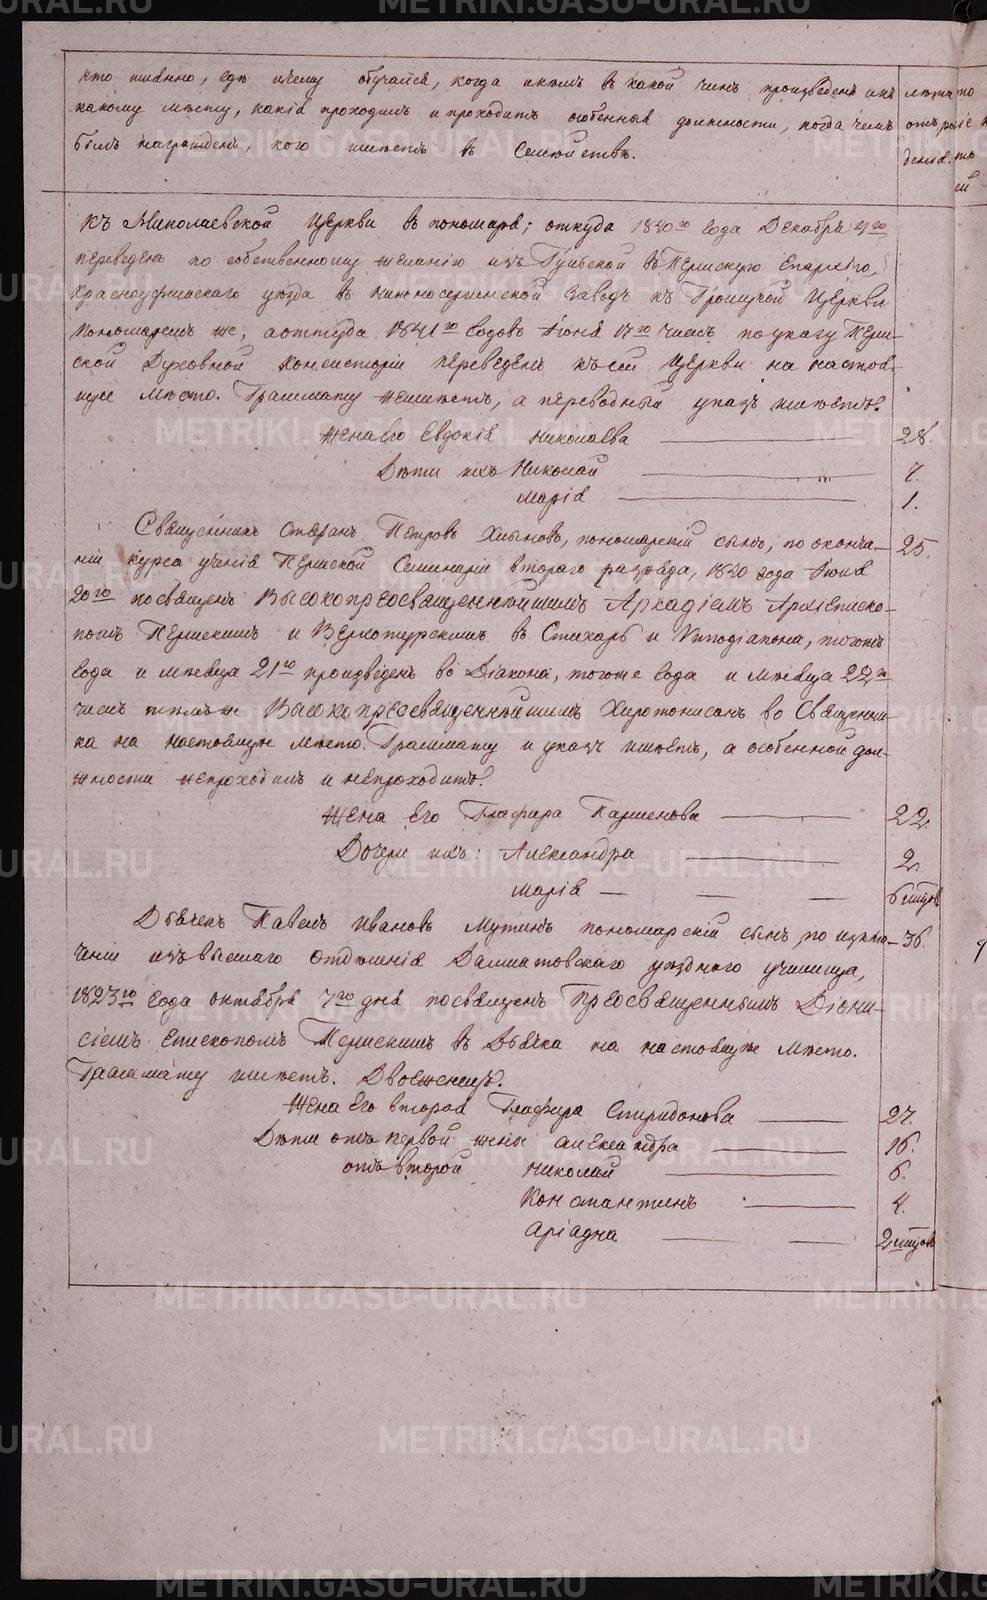 кто именно, гдѣ и чему обучался, когда и кѣмъ въ какой чинъ произведенъ и къ
какому мѣсту, какія проходилъ и проходитъ особенныя должности, когда чѣмъ
былъ награжденъ, кого имѣетъ въ Семействѣ.
лѣта
отъ рож
денія.
къ Николаевской Церкви въ пономаря; откуда 1840го Года Декабря
переведенъ по собственному желанію изъ въ Пермскую Епархію,
Красноуфимскаго уѣзда въ Нижносергинской Заводъ къ Троицкой Церкви
Пономаремъ же, а оттуда 1841го Годовъ Іюня 17го числъ по указу Перм-
ской Духовной Консисторіи переведенъ къ сей Церкви на настоя-
щее мѣсто. Грамматы неимѣетъ, а переводный указъ имѣетъ.
Жена его Евдокія Николаева 28.
Дѣти ихъ Николай 7.
Марія 1.
Священникъ Стефанъ Петровъ Хлыновъ, пономарскій сынъ, по оконча- 25.
ніи курса ученія Пермской Семинаріи втораго разряда, 1840 года Іюля
20го посвященъ Высокопреосвященнѣйшимъ Аркадіемъ Архіеписко-
помъ Пермскимъ и Верхотурскимъ въ Стихарь и Vподіакона, тогожъ
Года и мѣсяца 21го произведенъ во Діакона, тогоже Года и мѣсяца 22го
числъ тѣмъ же Высокопреосвященнѣйшимъ Хиротонисанъ во Священни-
ка на настоящее мѣсто. Граммату и указъ имѣетъ, а особенной дол-
жности непроходилъ и непроходитъ.
Жена Его Глафира Парменова 22.
Дочери ихъ: Александра 2.
Марія 6 мѣсяцовъ
Дьячекъ Павелъ Ивановъ Мутинъ пономарскій сынъ, по исклю- 36.
ченіи изъ высшаго отдѣленія Далматовскаго уѣзднаго училища,
1823го Года октября 7го дня посвященъ Преосвященнымъ Діони-
сіемъ Епископомъ Пермскимъ въ Дьячка на настоящее мѣсто.
Граммату имѣетъ. Двоеженецъ.
Жена Его вторая Глафира Спиридонова 27.
Дѣти отъ первой жены Александра 16.
отъ второй Николай 6.
Константинъ 4.
Аріадна 2 мѣсяцовъ